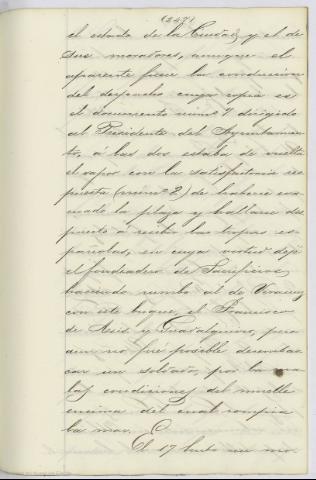 (247)
el estado de la Ciudad y el de
sus moradores, aunque el
aparente fuera la conduccion
del despacho cuya copia es
el documento núm.º 1 dirigido
al Presidente del Ayuntamien-
to, á las dos estaba de vuelta
el vapor con la satisfactoria res
puesta (núm.º 2) de haberse eva
cuado la plaza y hallarse dis
puesto á recibir las tropas es
pañolas, en cuya virtud dejé
el fondeadero de Sacrificios
haciendo rumbo al de Veracruz
con este buque, el Francisco
de Asis y Guadalquivir, pero
aun no fué posible desembar
car un soldado, por las ma
las condiciones del muelle
encima del cual rompia
la mar.
El 17 hubo un mo-